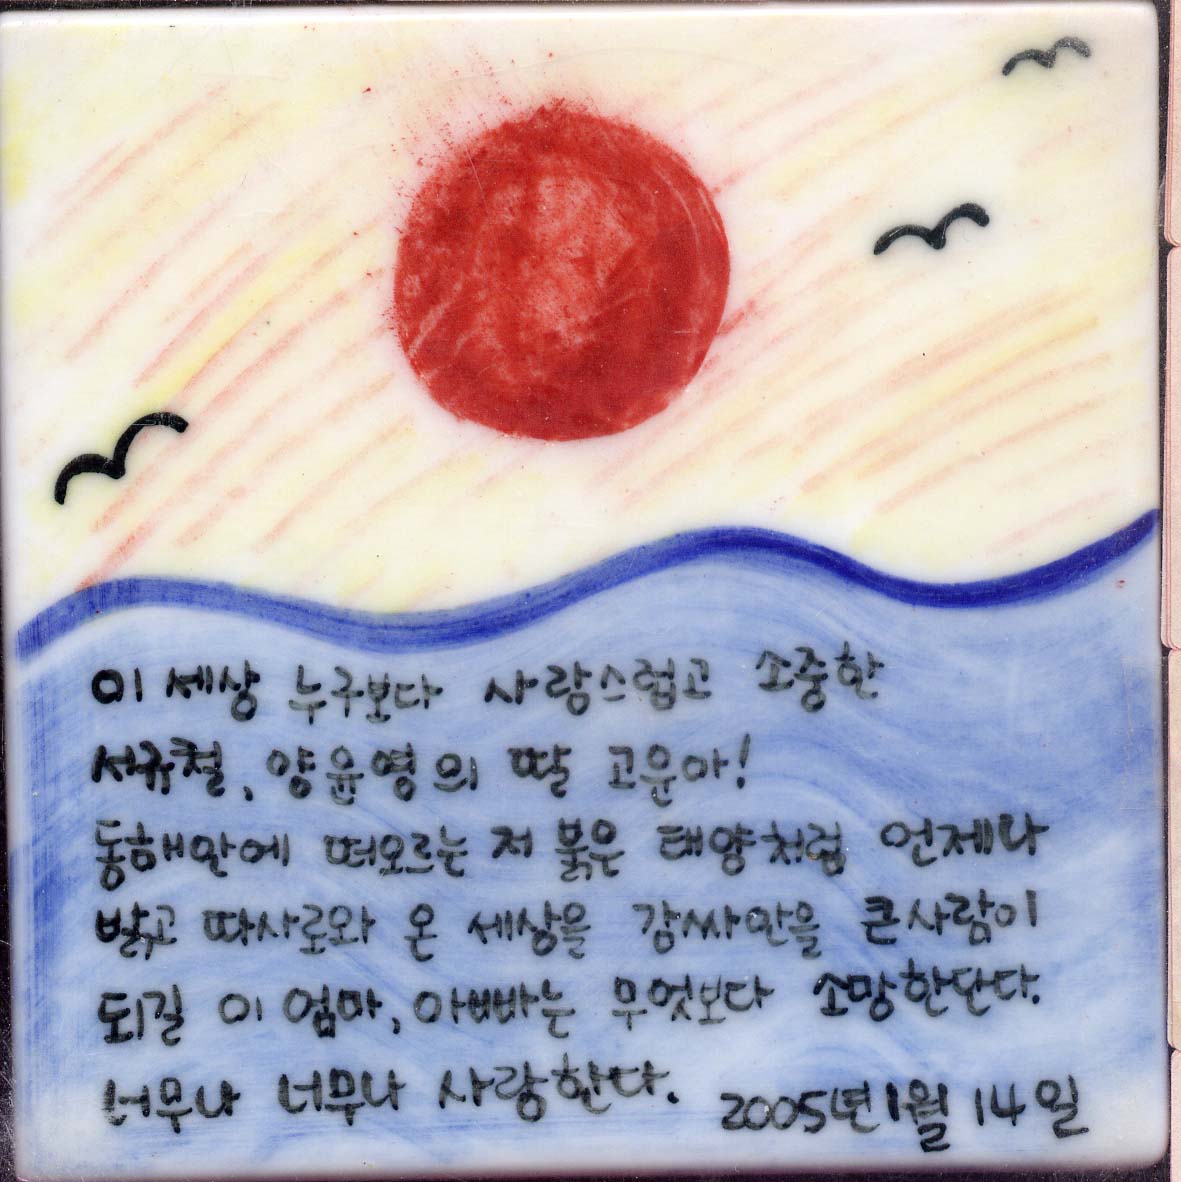 이 세상 누구보다 사랑스럽고 소중한
서규철, 양윤영의 딸 고운아!
동해안에 떠오르는 저 붉은 태양처럼 언제나
밝고 따사로와 온 세상을 감싸안을 큰사람이
되길 이 엄마, 아빠는 무엇보다 소망한단다.
너무나 너무나 사랑한다. 2005년 1월 14일